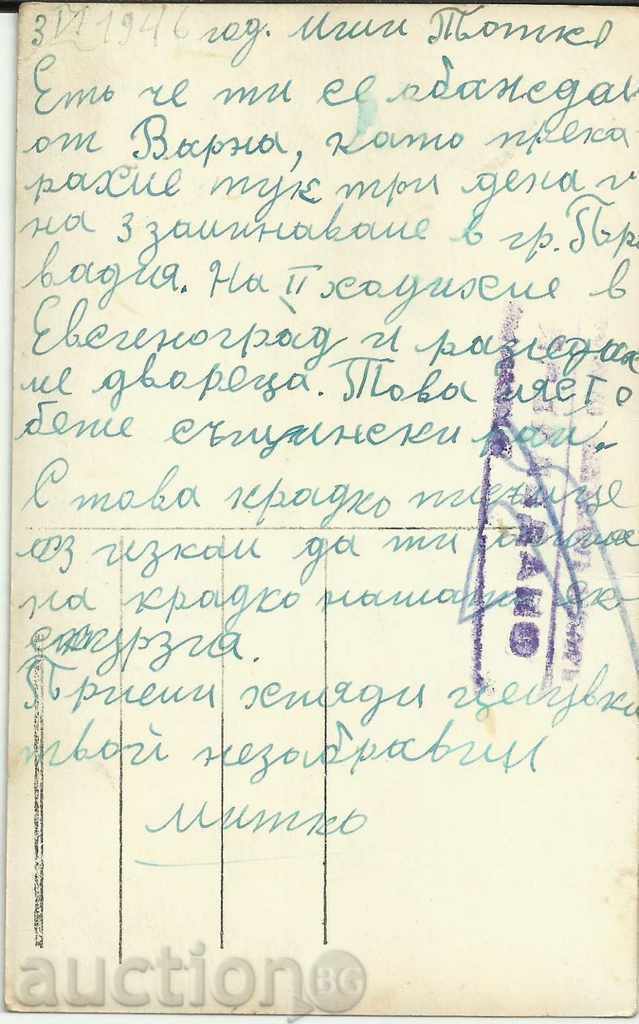 3 VI 1946 год. Мили Тотко
Еть че ти се обаждам
от Варна, като прека
рахме тук три дена и
на 3 заминаваме в гр. Про
вадия. На II ходихме в
Евсеноград и разгедах
ме двореца. Това място
беше същински рай.
С това крадко писмце
аз искам да ти
на крадко нашата ек
скурзия.
Приеми хиляди целувки
твой незабравим
Митко
ДАНО
auction BG